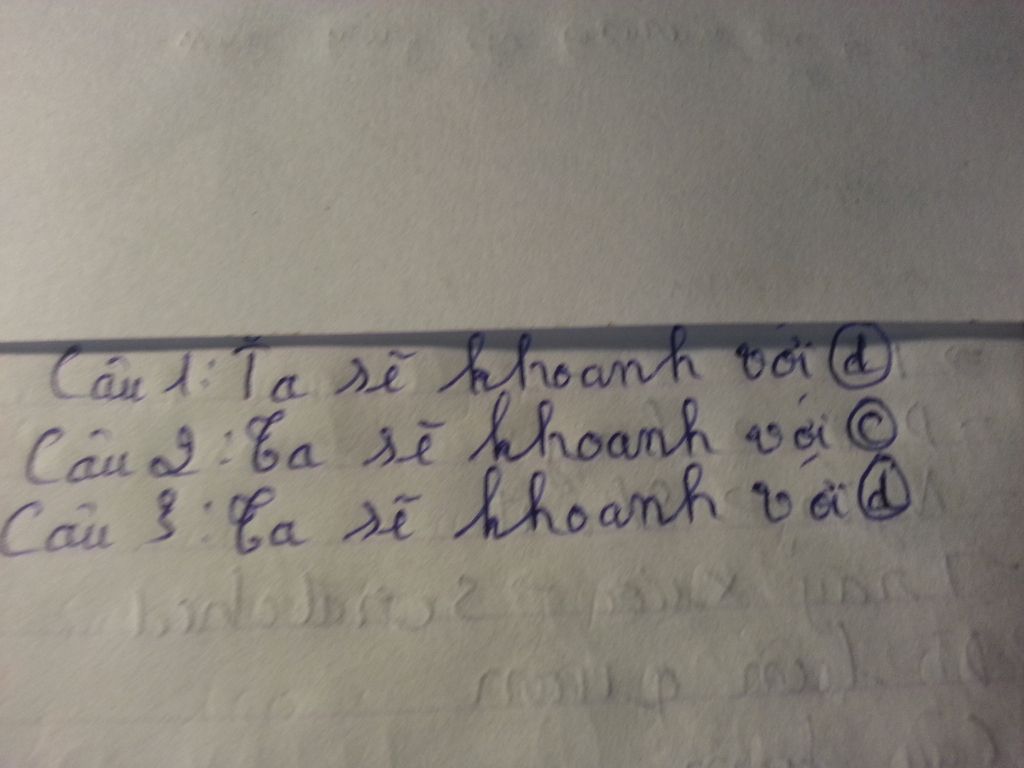 Câu 1: Ta sẽ khoanh với d
Câu 2: Ta sẽ khoanh với c
Câu 3: Ta sẽ khoanh với d